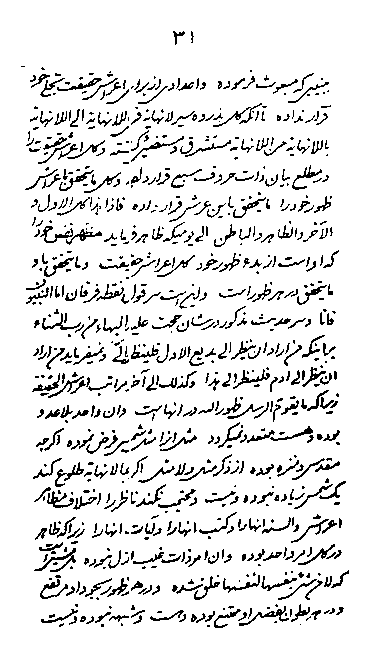 ۳۱
بنبیی که مبعوث فرموده و اعدادی از برای اعراش حقیقت تجلی خود
قرار نداده تا آنکه کل بذره سیر لا نهایة فی اللانهایة الی اللانهایة
باللانهایة من اللانهایة مستشرق و مستضیئ گشته و کل اعراش حقیقت را
در مطلع بیان ذات حروف سبع قرار داده و کل ما یتحقق باعراش
ظهور خود را ما یتحقق باین عرش قرار داده فاذا هذا کل الاول و
الآخر و الظاهر و الباطن الی یومیکه ظاهر فرماید مظهر نفس خود را
که او است از بدع ظهور خود کل اعراش حقیقت و ما یتحقق باو
ما یتحقق در هر ظهور است و این است سر قول نقطه فرقان اما النبیون
فانا و سر حدیث مذکور در شأن حجت علیه البهاء من رب السماء
بر اینکه من اراد ان ینظر الی بدیع الاول فلینظر الی و میفرماید من اراد
ان ینظر الی آدم فلینظر الی هذا و کذلک الی آخر مراتب اعراش الحقیقة
زیرا که ما یقوم الرسل ظهور الله در انها است و ان واحد بلا عدد
بوده و هست متعدد نمیگردد مثلا از امثله شمس فرض نموده اگرچه
مقدس و منزه بوده از ذکر مثل و لا مثل اگر بالا نهایة طلوع کند
یک شمس زیاده نبوده و نیست و محتجب نکند ناظر را اختلاف مظاهر
اعراش و السنه انها و کتب انها و آیات انها زیرا که ظاهر
در کل امر واحد بوده و ان امر ذات غیب ازل نبوده بل مشیتی است
که لا من شئ بنفسها لنفسها خلق شده و در هر ظهور بسجود او مرتفع
و در هر بطون بفضل او ممتنع بوده و هست و شبهه نبوده و نیست